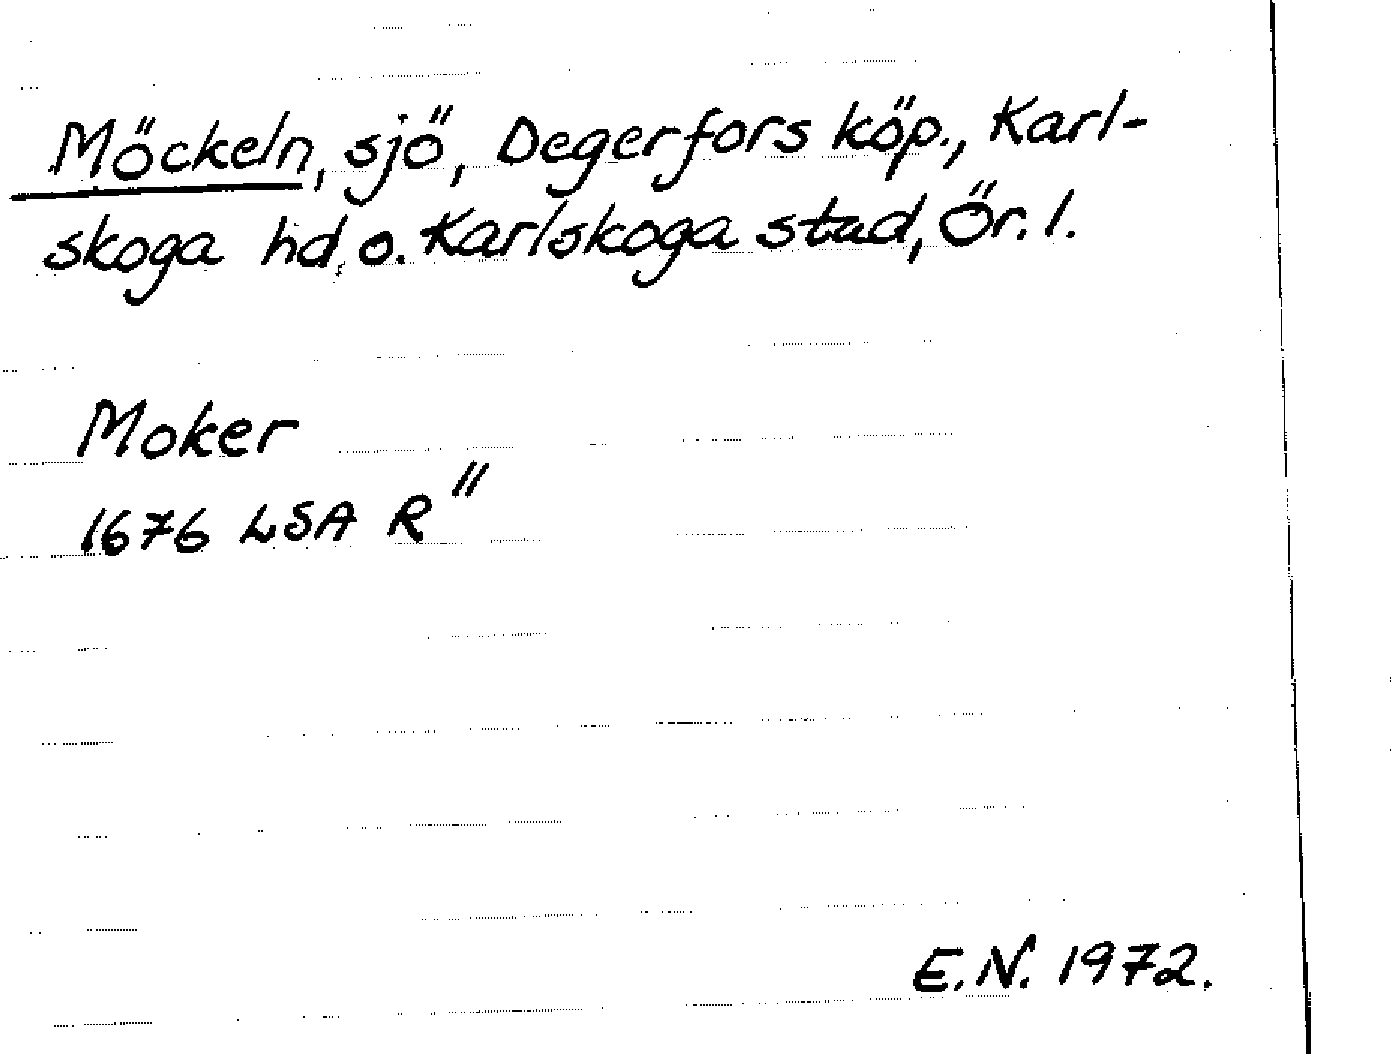 Möckeln, sjö, Degerfors köp., Karl-
skoga hd, o. Karlskoga stad, Ör. l.
Moker
1676 LSA R"
E.N. 1972.